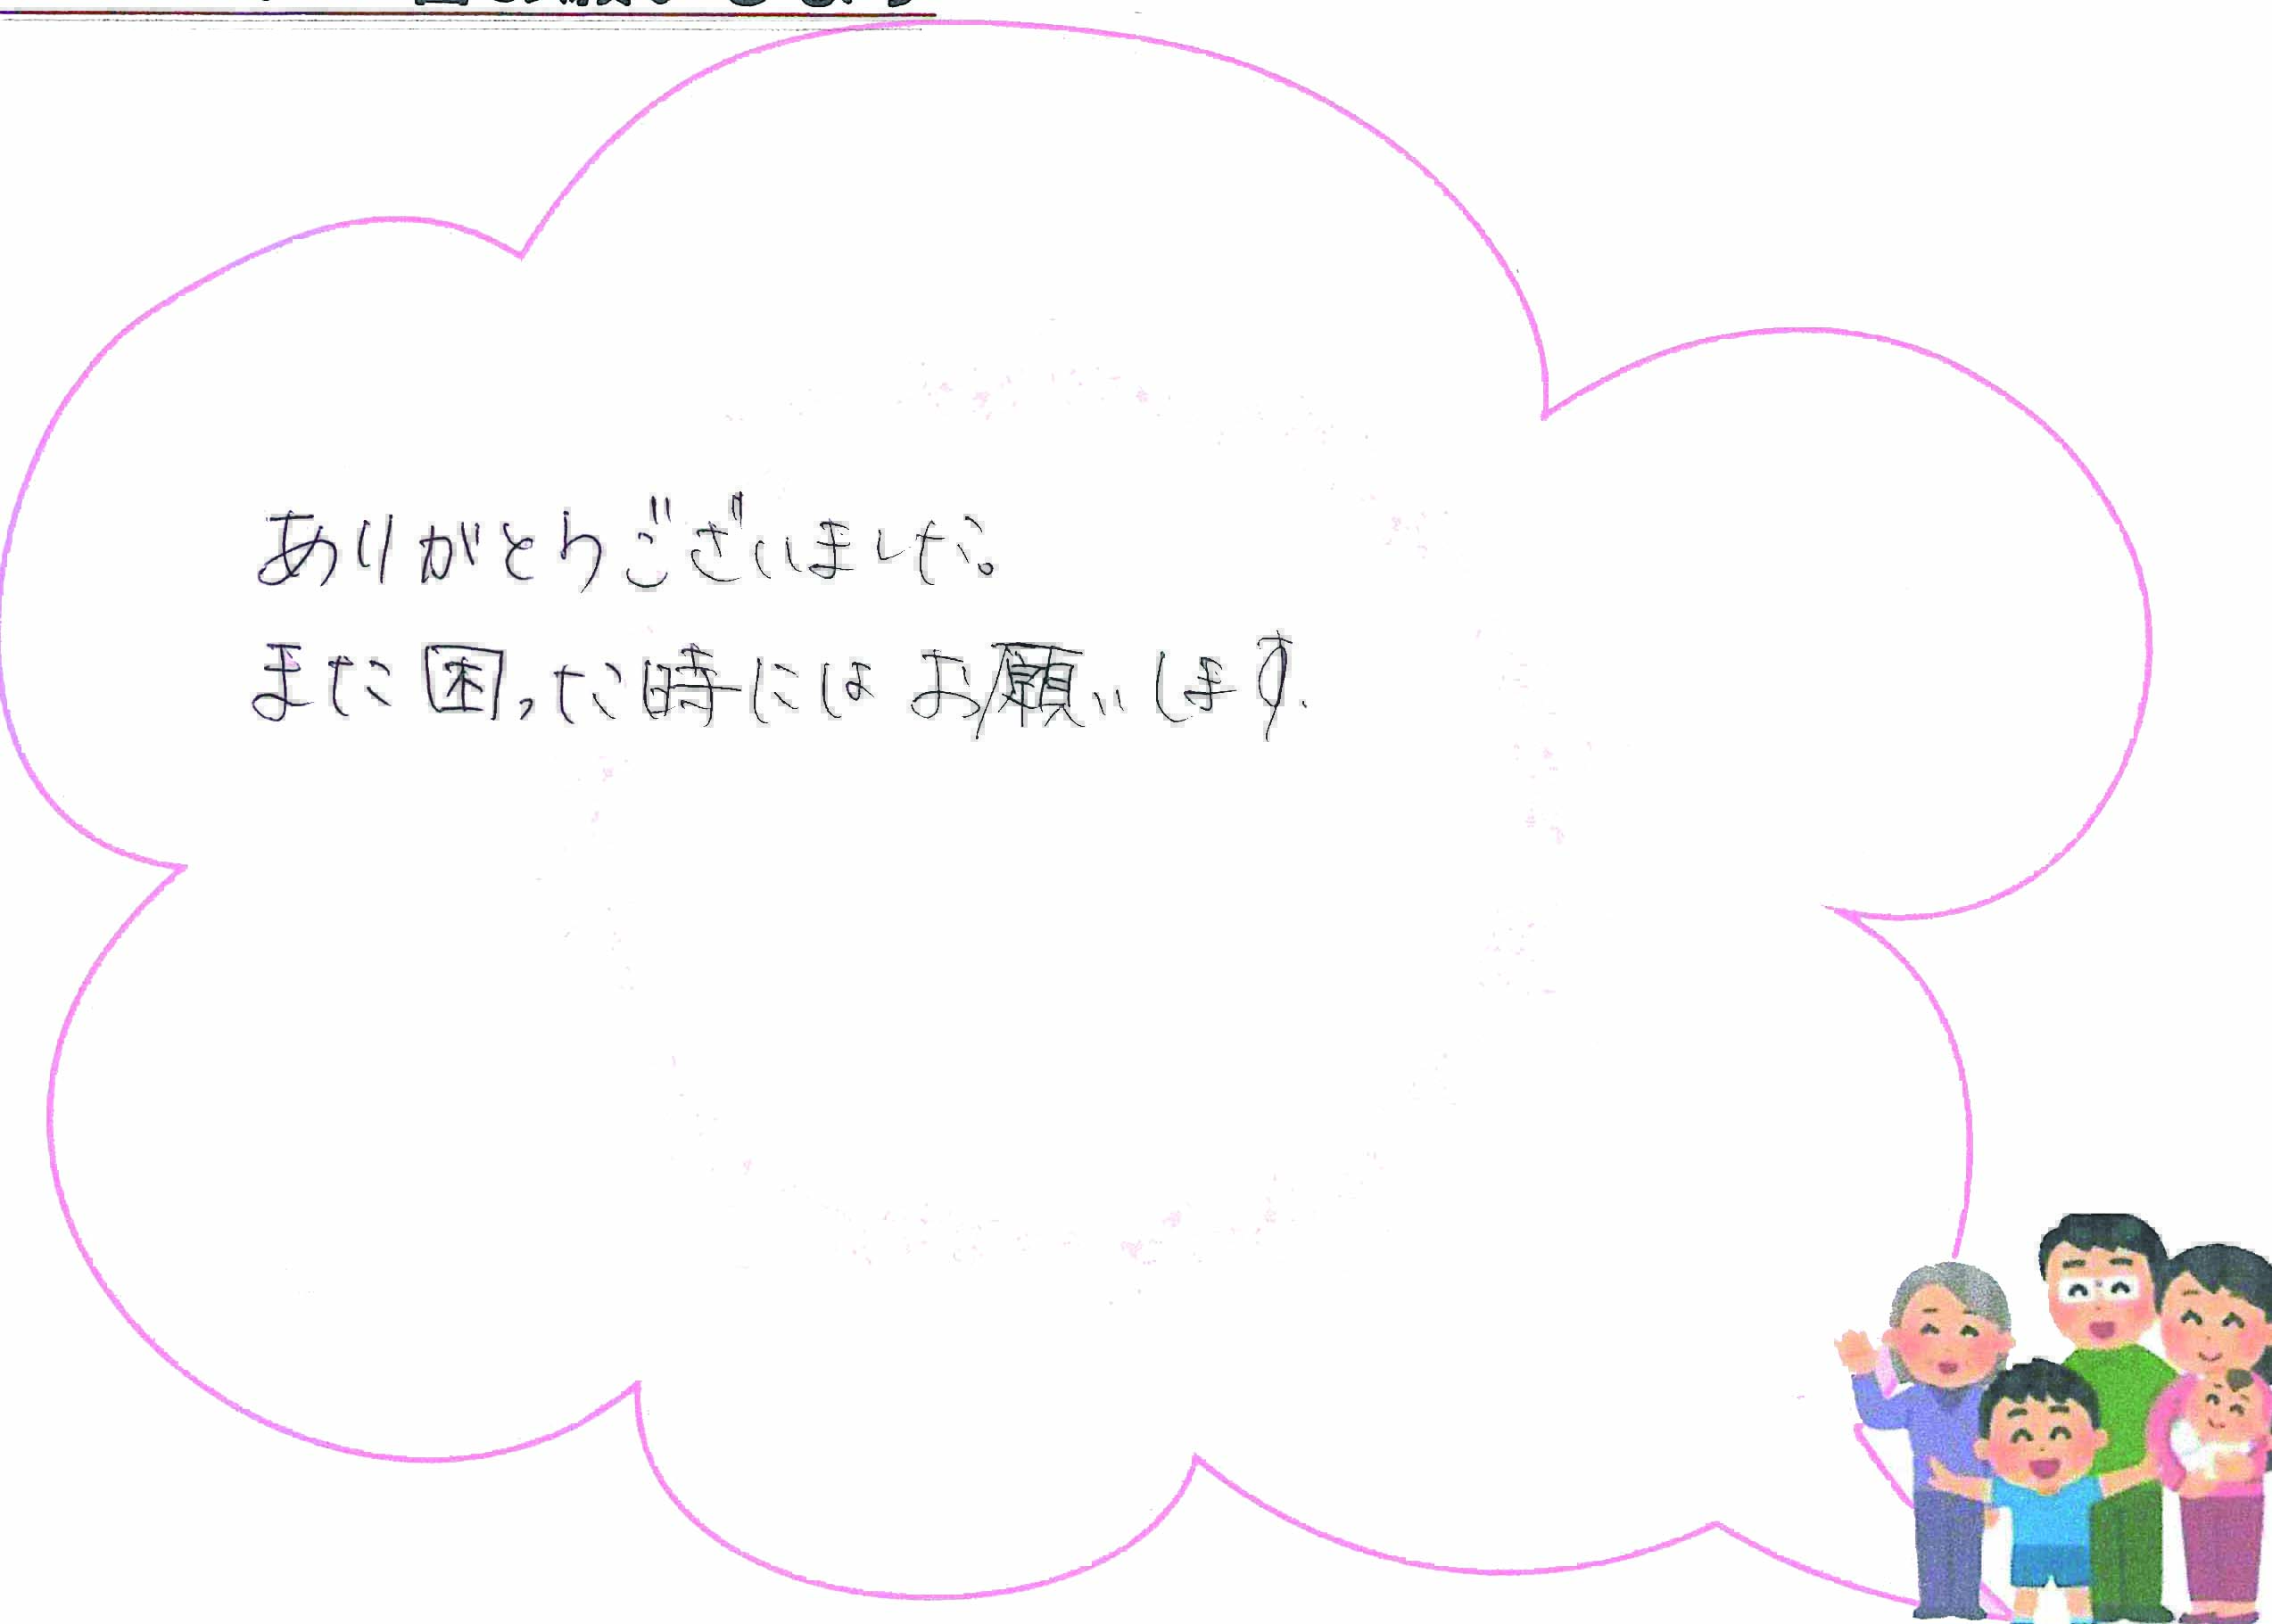 ありがとうございました。
また困った時にはお願いします.